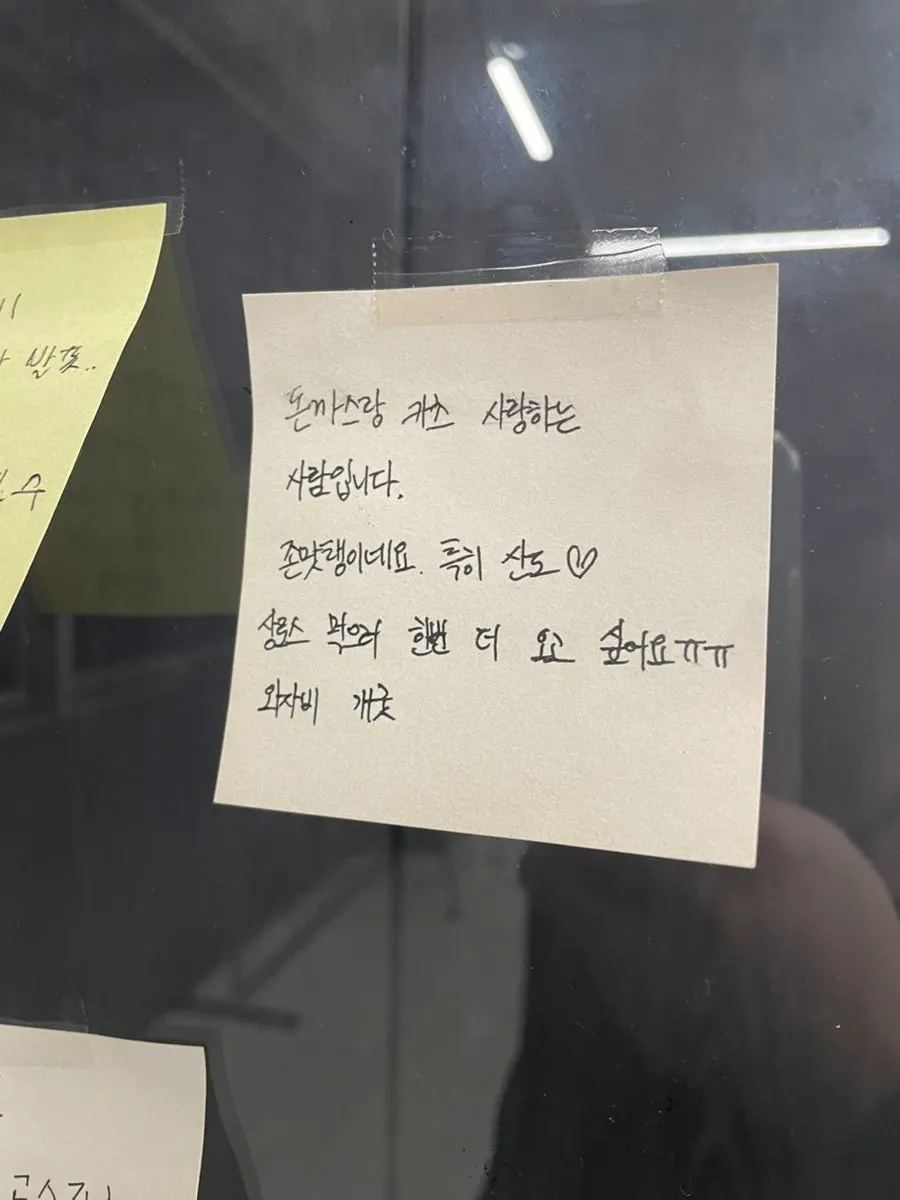 발표..
수
돈까스랑 카츠 사랑하는
사람입니다.
존맛탱이네요. 특히 산도♡
상로스 먹으러 한번 더 오고 싶어요ㅠㅠ
와자비 개굿